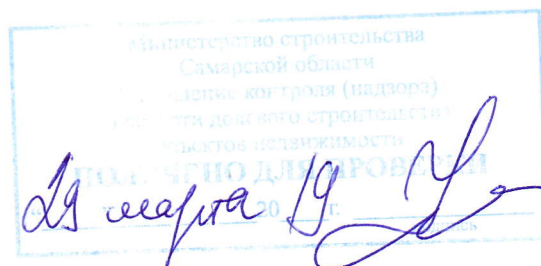 Министерство строительства
Самарской области
контроля (надзора)
долевого строительства
объектов недвижимости
ПОЛУЧЕНО ДЛЯ ПРОВЕРКИ
29 марта 2019 г.